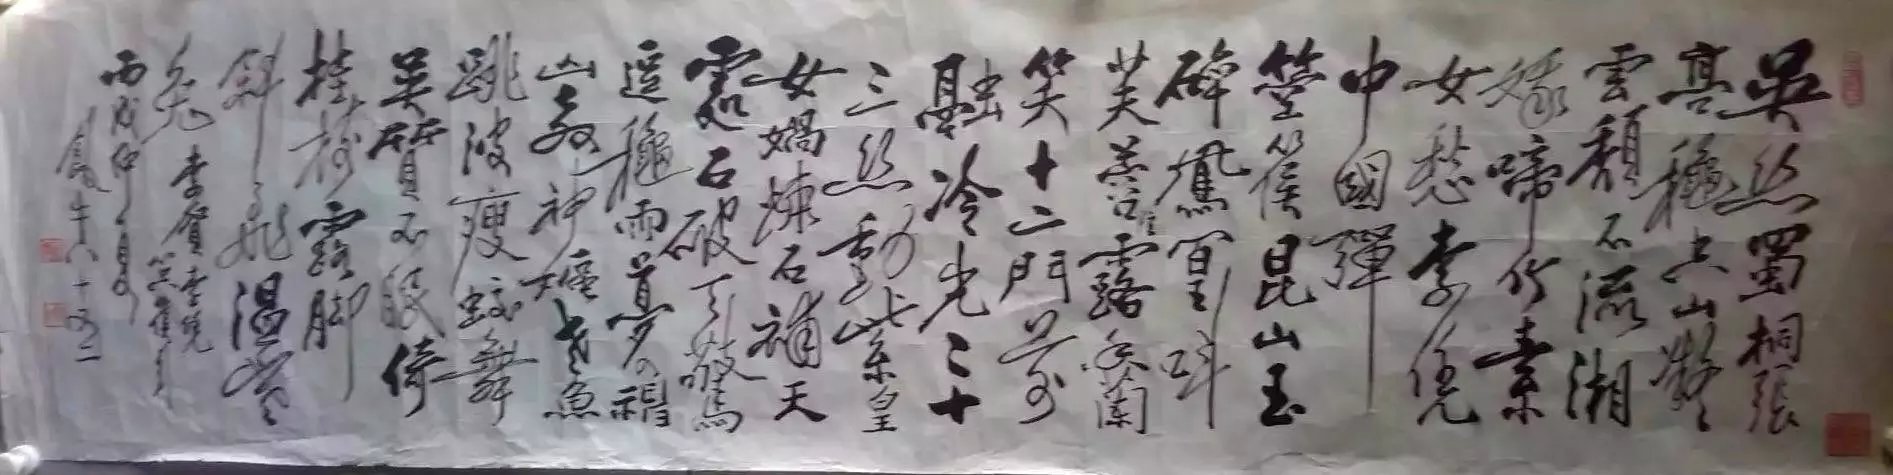 吳絲蜀桐張
高穐空山凝
雲頹不流湘
娥啼竹素
女愁李凭
中國彈
箜篌昆山玉
碎鳳凰叫
芙蓉泣露香蘭
笑十二門前
融冷光二十
三絲動紫皇
女媧煉石補天
處石破天驚
逗穐雨夢入神
山教神嫗老魚
跳波瘦蛟舞
吳質不眠倚
桂樹露脚
斜飛濕寒
兔 李賀李凭
箜篌引
丙戌仲夏
年八十又二